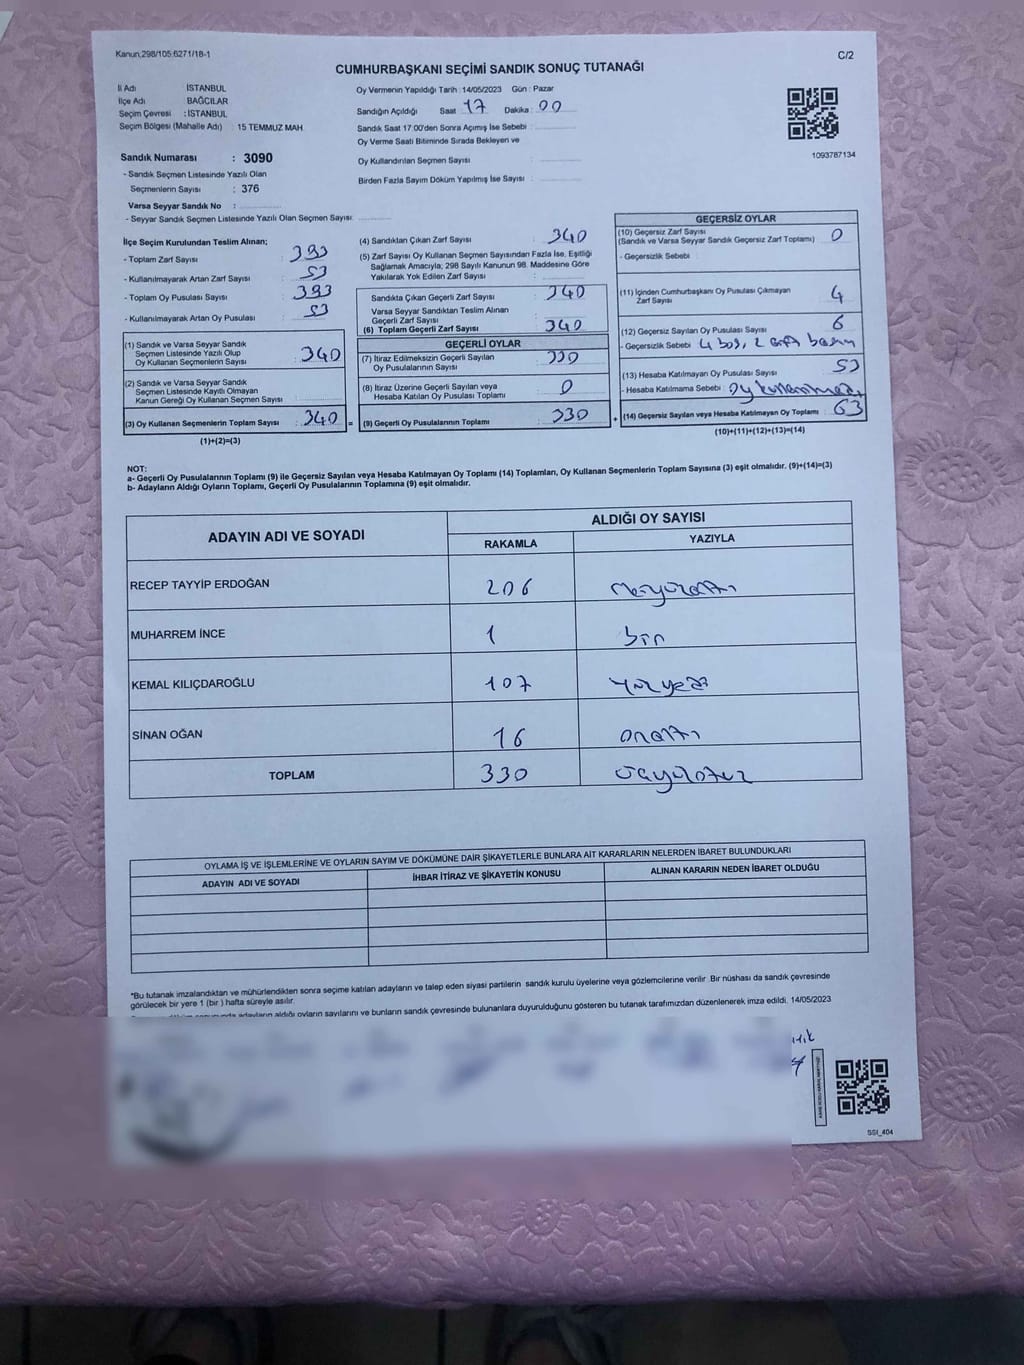 Kanun;298/105;6271/18-1
C/2
CUMHURBAŞKANI SEÇİMİ SANDIK SONUÇ TUTANAĞI
İl Adı İSTANBUL
İlçe Adı BAĞCILAR
Seçim Çevresi : İSTANBUL
Seçim Bölgesi (Mahalle Adı) : 15 TEMMUZ MAH.
Oy Vermenin Yapıldığı Tarih : 14/05/2023 Gün : Pazar
Sandığın Açıldığı Saat 17 Dakika : 00
Sandık Saat 17:00'den Sonra Açımış İse Sebebi :
Oy Verme Saati Bitiminde Sırada Bekleyen ve
Oy Kullandırılan Seçmen Sayısı :
Birden Fazla Sayım Döküm Yapılmış İse Sayısı :
1093787134
Sandık Numarası : 3090
- Sandık Seçmen Listesinde Yazılı Olan
Seçmenlerin Sayısı : 376
Varsa Seyyar Sandık No :
- Seyyar Sandık Seçmen Listesinde Yazılı Olan Seçmen Sayısı:
İlçe Seçim Kurulundan Teslim Alınan;
- Toplam Zarf Sayısı : 393
- Kullanılmayarak Artan Zarf Sayısı : 53
- Toplam Oy Pusulası Sayısı : 393
- Kullanılmayarak Artan Oy Pusulası : 53
(1) Sandık ve Varsa Seyyar Sandık
Seçmen Listesinde Yazılı Olup
Oy Kullanan Seçmenlerin Sayısı : 340
(2) Sandık ve Varsa Seyyar Sandık
Seçmen Listesinde Kayıtlı Olmayan
Kanun Gereği Oy Kullanan Seçmen Sayısı :
(3) Oy Kullanan Seçmenlerin Toplam Sayısı : 340 =
(1)+(2)=(3)
(4) Sandıktan Çıkan Zarf Sayısı : 340
(5) Zarf Sayısı Oy Kullanan Seçmen Sayısından Fazla İse, Eşitliği
Sağlamak Amacıyla; 298 Sayılı Kanunun 98. Maddesine Göre
Yakılarak Yok Edilen Zarf Sayısı :
Sandıkta Çıkan Geçerli Zarf Sayısı : 340
Varsa Seyyar Sandıktan Teslim Alınan
Geçerli Zarf Sayısı :
(6) Toplam Geçerli Zarf Sayısı : 340
GEÇERLİ OYLAR
(7) İtiraz Edilmeksizin Geçerli Sayılan
Oy Pusulalarının Sayısı : 330
(8) İtiraz Üzerine Geçerli Sayılan veya
Hesaba Katılan Oy Pusulası Toplamı : 0
(9) Geçerli Oy Pusulalarının Toplamı : 330 +
GEÇERSİZ OYLAR
(10) Geçersiz Zarf Sayısı
(Sandık ve Varsa Seyyar Sandık Geçersiz Zarf Toplamı) : 0
- Geçersizlik Sebebi :
(11) İçinden Cumhurbaşkanı Oy Pusulası Çıkmayan
Zarf Sayısı : 4
(12) Geçersiz Sayılan Oy Pusulası Sayısı : 6
- Geçersizlik Sebebi : 4 boş, 2 çift
(13) Hesaba Katılmayan Oy Pusulası Sayısı : 53
- Hesaba Katılmama Sebebi : oy
(14) Geçersiz Sayılan veya Hesaba Katılmayan Oy Toplamı : 63
(10)+(11)+(12)+(13)=(14)
NOT:
a- Geçerli Oy Pusulalarının Toplamı (9) ile Geçersiz Sayılan veya Hesaba Katılmayan Oy Toplamı (14) Toplamları, Oy Kullanan Seçmenlerin Toplam Sayısına (3) eşit olmalıdır. (9)+(14)=(3)
b- Adayların Aldığı Oyların Toplamı, Geçerli Oy Pusulalarının Toplamına (9) eşit olmalıdır.
ADAYIN ADI VE SOYADI ALDIĞI OY SAYISI
RAKAMLA YAZIYLA
RECEP TAYYİP ERDOĞAN 206 ikiyüzaltı
MUHARREM İNCE 1 bir
KEMAL KILIÇDAROĞLU 107 yüzyedi
SİNAN OĞAN 16 onaltı
TOPLAM 330 üçyüzotuz
OYLAMA İŞ VE İŞLEMLERİNE VE OYLARIN SAYIM VE DÖKÜMÜNE DAİR ŞİKAYETLERLE BUNLARA AİT KARARLARIN NELERDEN İBARET BULUNDUKLARI
ADAYIN ADI VE SOYADI İHBAR İTİRAZ VE ŞİKAYETİN KONUSU ALINAN KARARIN NEDEN İBARET OLDUĞU
*Bu tutanak imzalandıktan ve mühürlendikten sonra seçime katılan adayların ve talep eden siyasi partilerin sandık kurulu üyelerine veya gözlemcilerine verilir .Bir nüshası da sandık çevresinde
görülecek bir yere 1 (bir ) hafta süreyle asılır.
adayların aldığı oyların sayılarını ve bunların sandık çevresinde bulunanlara duyurulduğunu gösteren bu tutanak tarafımızdan düzenlenerek imza edildi. 14/05/2023
SSI_404